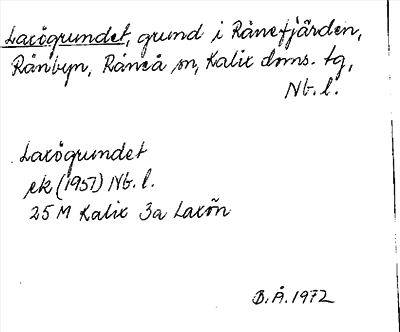 Laxögrundet, grund i Rånefjärden,
Rånbyn, Råneå sn, Kalix doms. tg,
Nb. l.
Laxögrundet
ek (1957) Nb. l.
25 M Kalix 3a Laxön
B. Å. 1972